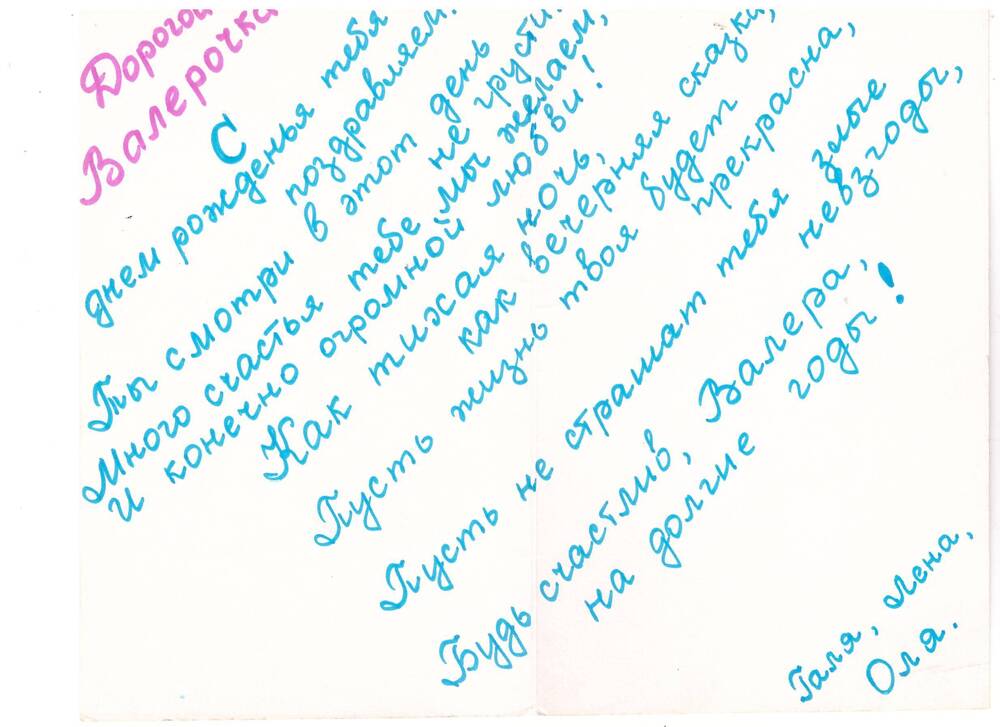 Дорогой
Валерочка
С
днем рожденья тебя
поздравляем.
Ты смотри в этот день
не грусти.
Много счастья тебе мы желаем,
И конечно огромной любви!
Как тихая ночь,
как вечерняя сказка,
Пусть жизнь твоя будет
прекрасна,
Пусть не страшат тебя злые
невзгоды,
Будь счастлив, Валера,
на долгие годы!
Галя, Лена,
Оля.